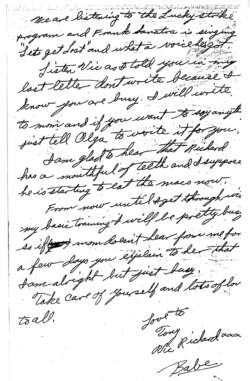 We are listening to the Lucky strike
program and Frank Sanatra is singing
"Lets get Lost" and what a voice he's got.
Listen Vic as I told you in my
last letter dont write because I
know you are busy. I will write
to mom and if you want to say anyth
just tell Olga to write it for you.
I am glad to hear that Richard
has a mouthful of teeth and I suppose
he is starting to eat the macs now.
From now until I get through wi
my basic training I will be pretty bus
so if mom doesn't hear from me for
a few days you explain to her that
I am alright but just busy.
Take care of yourself and lots of lov
to all.
Love to
Tony
Vic Richard xxxx
Babe